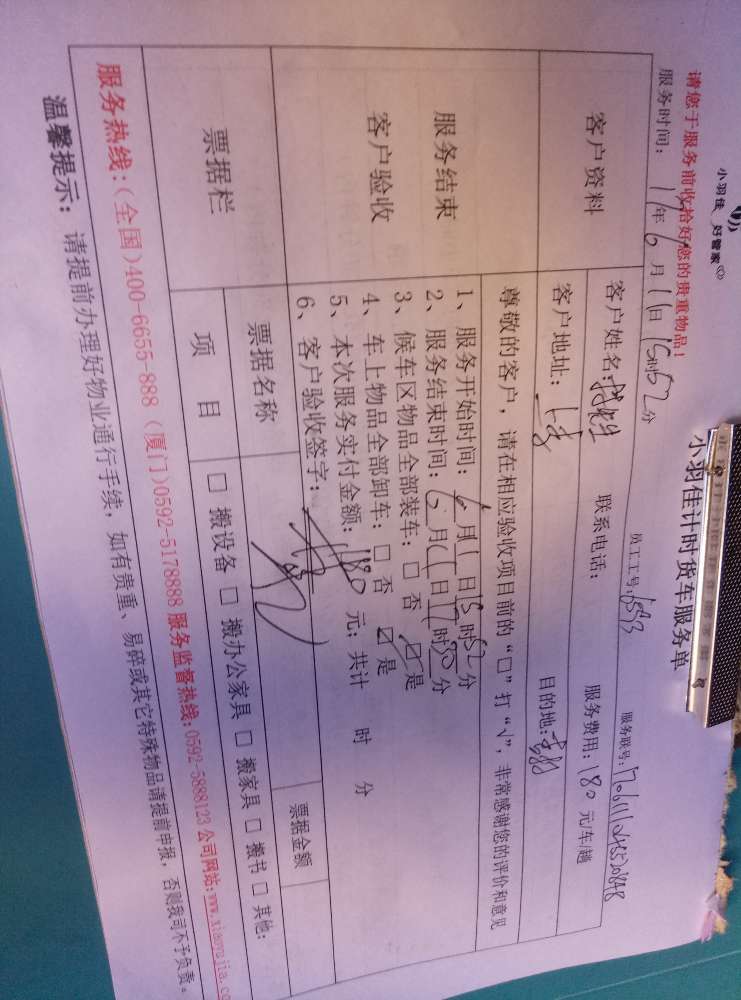 小羽佳 好管家
小羽佳计时货车服务单
请您于服务前收拾好您的贵重物品!
员工工号: 服务联号:
服务时间: 17年6月11日15时52分
客户资料
客户姓名: 联系电话: 服务费用: 180 元/车/趟
客户地址: 目的地:
服务结束
客户验收
尊敬的客户, 请在相应验收项目前的“□”打“√”, 非常感谢您的评价和意见
1、服务开始时间: 6月11日15时52分
2、服务结束时间: 6月11日17时30分
3、候车区物品全部装车: □ 否 ☑ 是
4、车上物品全部卸车: □ 否 ☑ 是
5、本次服务实付金额: 180 元; 共计 时 分
6、客户验收签字:
票据栏
票据名称 票据金额
项 目 □ 搬设备 □ 搬办公家具 □ 搬家具 □ 搬书 □ 其他:
服务热线:(全国)400-6655-888 (厦门)0592-5178888 服务监督热线:0592-5888123 公司网站:www.xiaoyujia.co
温馨提示: 请提前办理好物业通行手续, 如有贵重、易碎或其它特殊物品请提前申报, 否则我司不予负责。